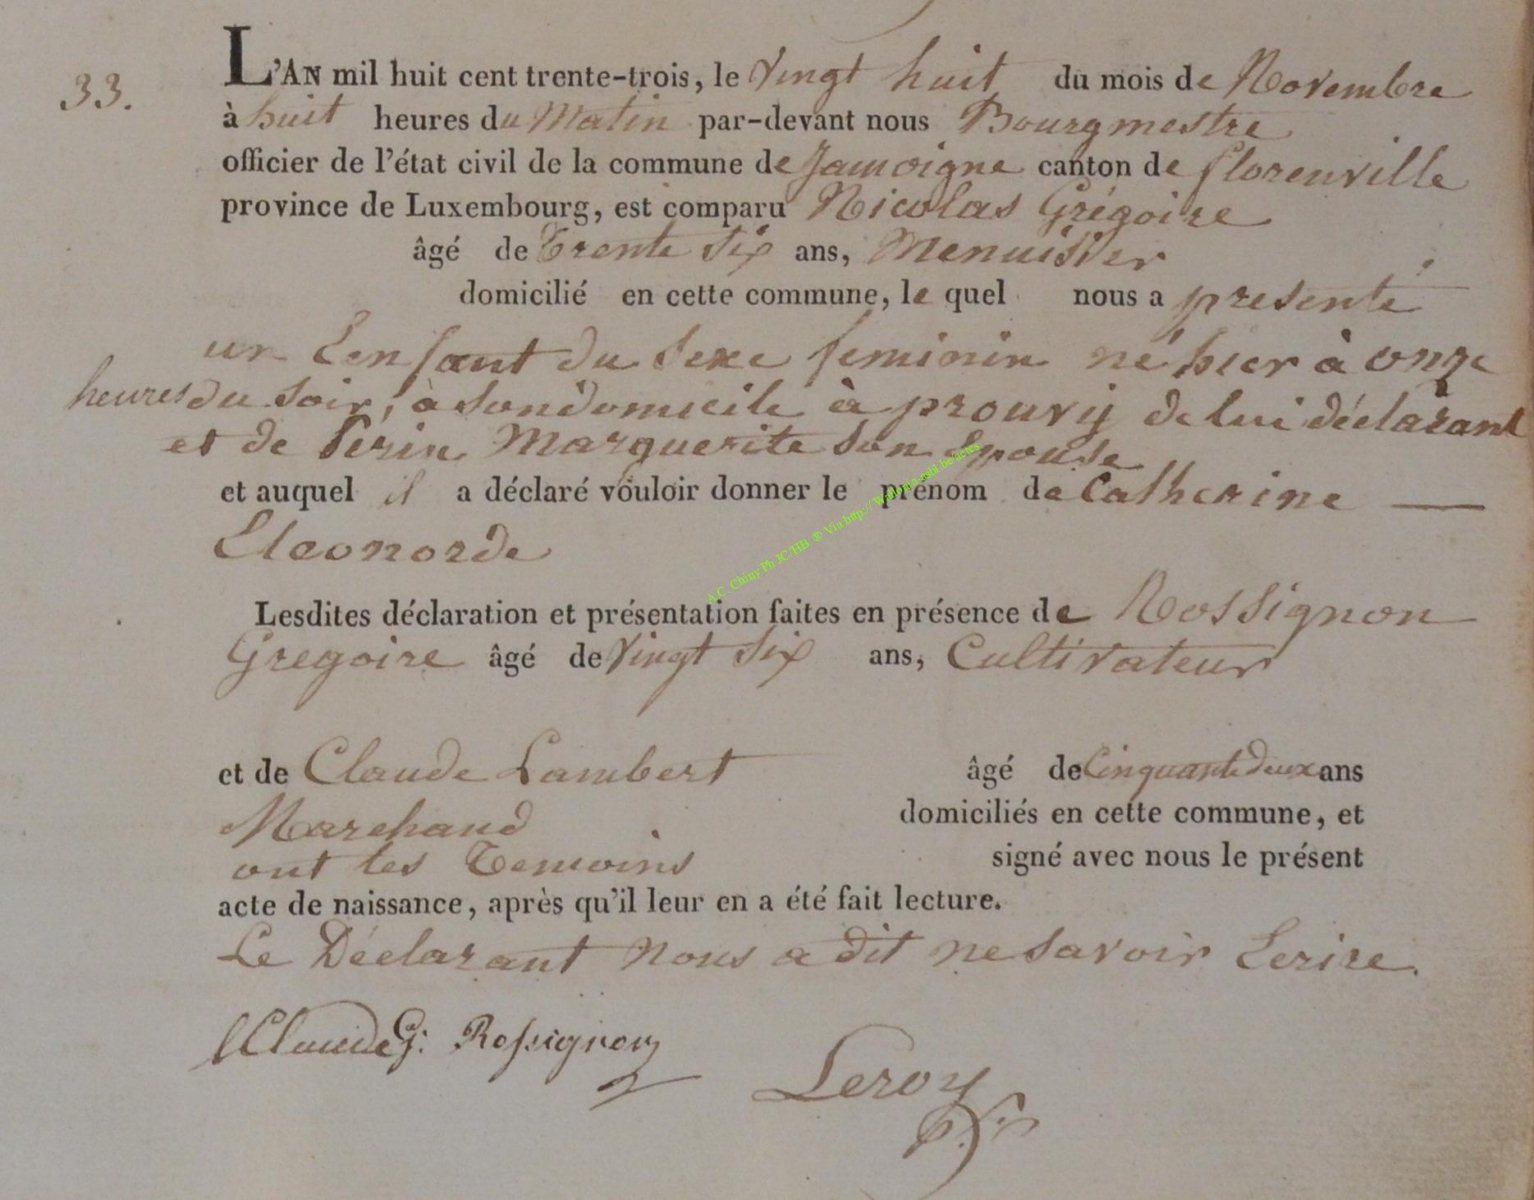 33.
L'AN mil huit cent trente-trois, le Vingt huit du mois de Novembre
à huit heures du Matin par-devant nous Bourgmestre
officier de l'état civil de la commune de Jamoigne canton de florenville
province de Luxembourg, est comparu Nicolas Grégoire
âgé de Trente Six ans, Menuisier
domicilié en cette commune, le quel nous a présenté
un Eenfant du Sexe feminin né hier à onze
heures du Soir, à Son domicile à prouvy de lui déclarant
et de Périn Marguerite Son Epouse
et auquel il a déclaré vouloir donner le prénom de Catherine —
Eleonorde
Lesdites déclaration et présentation faites en présence de Rossignon
Gregoire âgé de Vingt Six ans, Cultivateur
et de Claude Lambert âgé de Cinquante deux ans
Marchand domiciliés en cette commune, et
ont les Temoins signé avec nous le présent
acte de naissance, après qu'il leur en a été fait lecture.
Le Déclarant nous a dit ne Savoir Ecrire.
lClaude G: Rossignon
Leroy
A.C. Chiny Ph JC/HB © Via http://